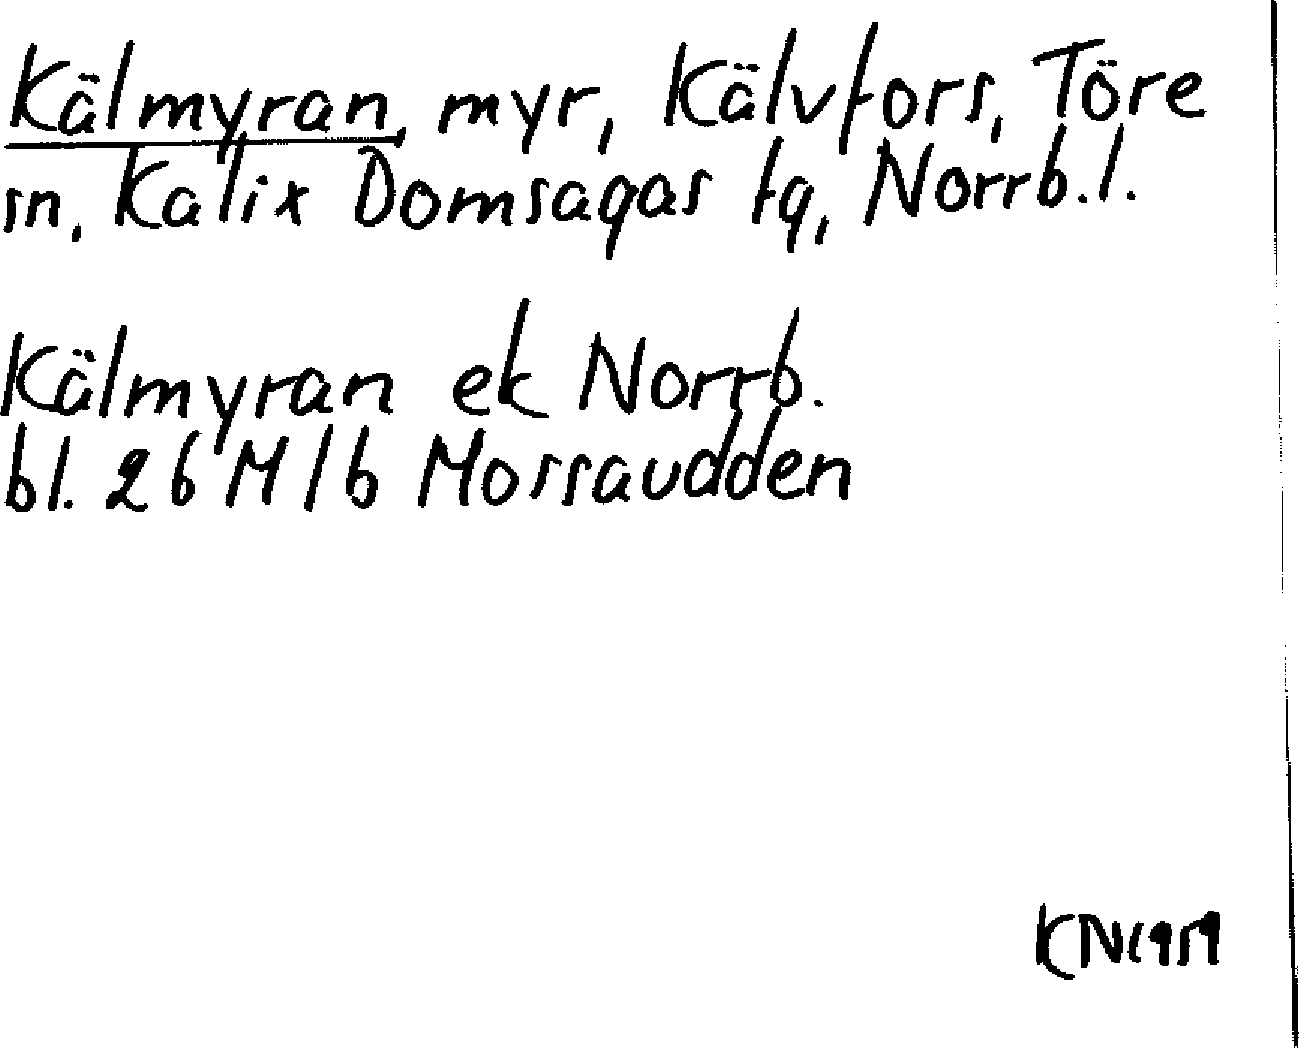 Kälmyran, myr, Kälvfors, Töre
sn, Kalix Domsagas tg, Norrb.l.
Kälmyran ek Norrb.
bl. 26 M/b Mossaudden
KN1959